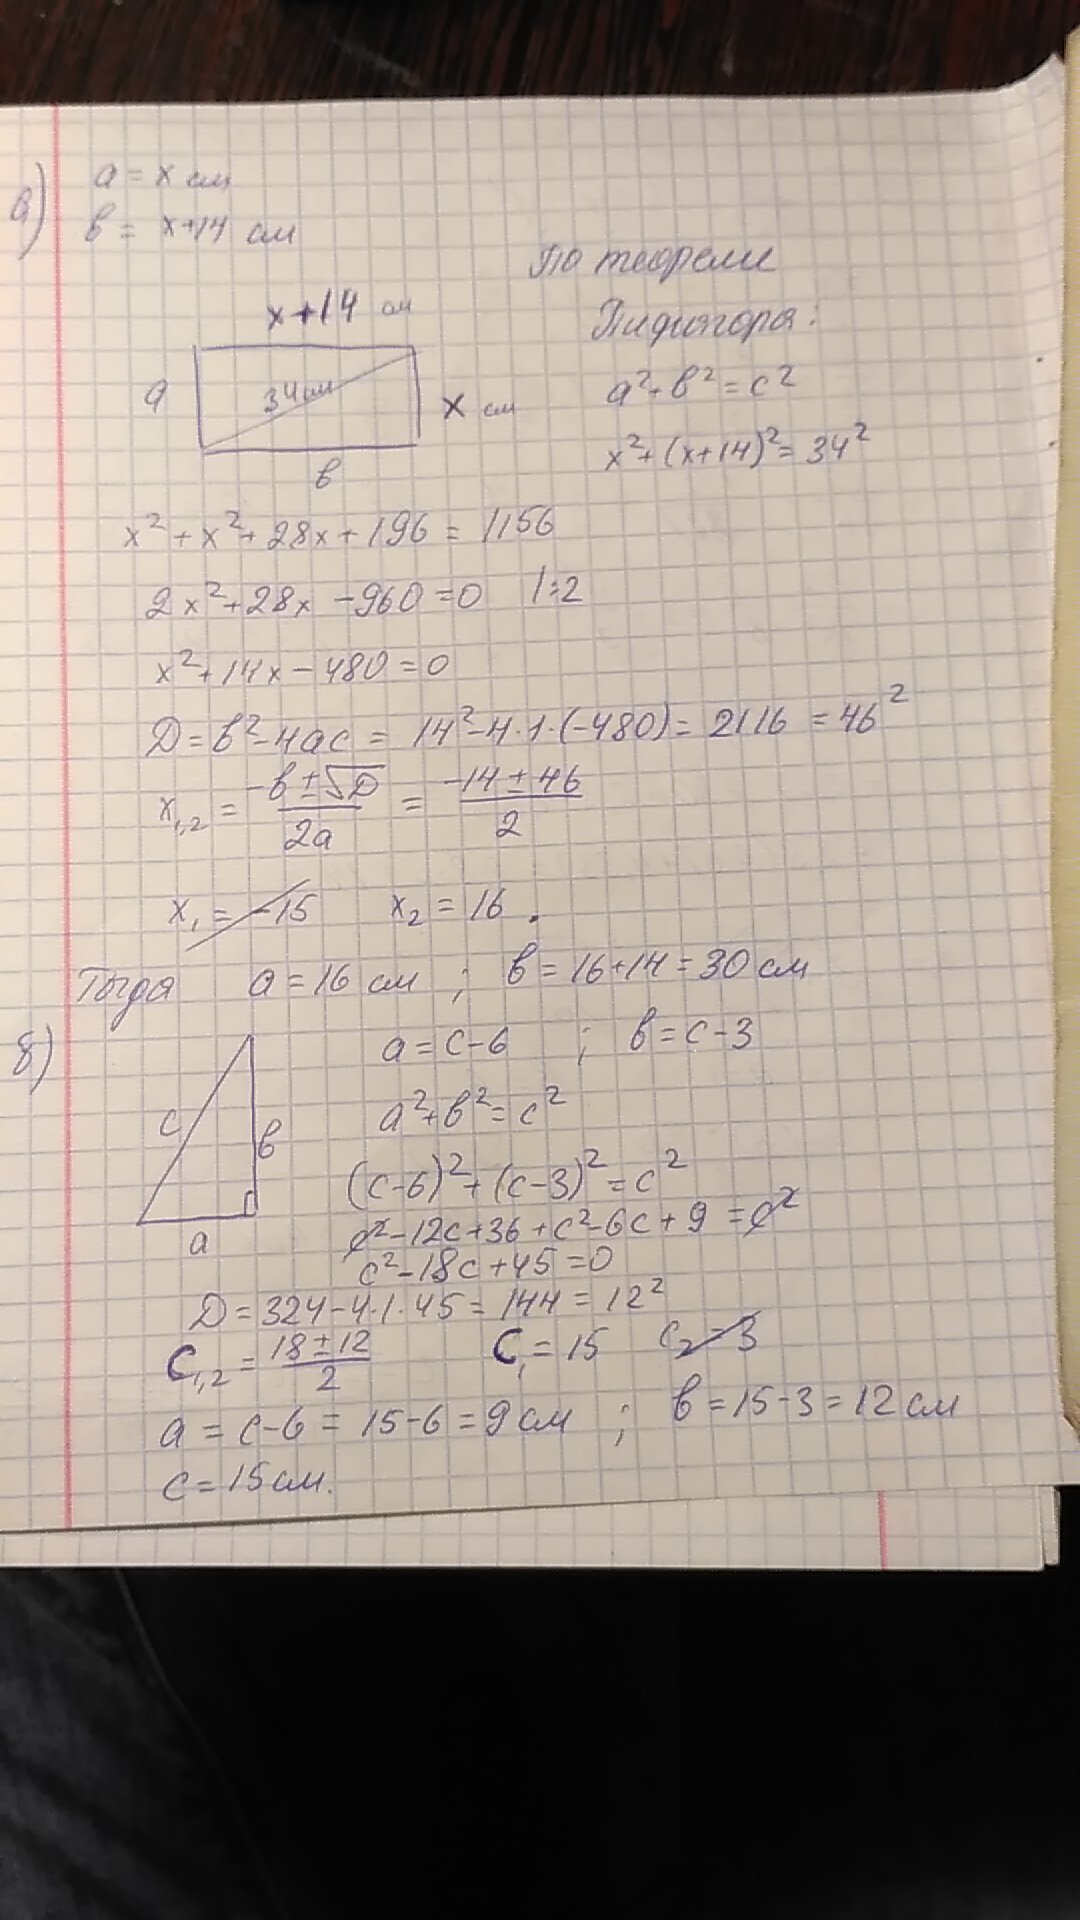 а) a = x см
в = x+14 см
По теореме
Пифагора:
x+14 см
a 34 см x см
в
a² + в² = c²
x² + (x+14)² = 34²
x² + x² + 28x + 196 = 1156
2x² + 28x - 960 = 0 |:2
x² + 14x - 480 = 0
Д = в² - 4ac = 14² - 4·1·(-480) = 2116 = 46²
x₁,₂ = (-в ± √Д)/2a = (-14 ± 46)/2
x₁ = -15 x₂ = 16.
Тогда a = 16 см ; в = 16+14 = 30 см
б) a = c-6 ; в = c-3
c в a
a² + в² = c²
(c-6)² + (c-3)² = c²
c² - 12c + 36 + c² - 6c + 9 = c²
c² - 18c + 45 = 0
Д = 324 - 4·1·45 = 144 = 12²
C₁,₂ = (18 ± 12)/2 C₁ = 15 c₂ = 3
a = c-6 = 15-6 = 9 см ; в = 15-3 = 12 см
c = 15 см.